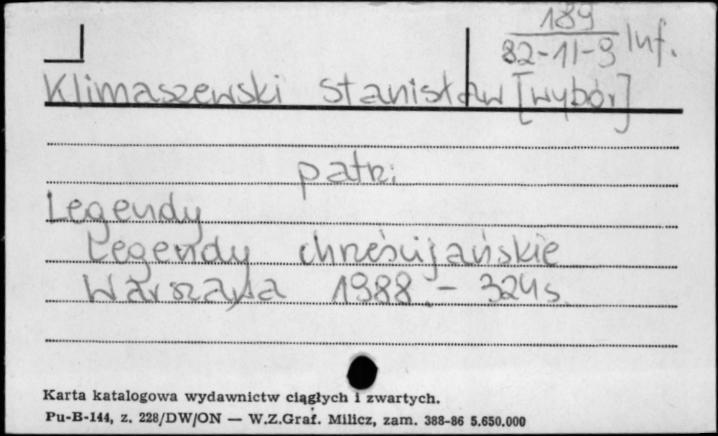 189
82-11-9 Inf.
Klimaszewski Stanisław [wybór]
patrz
Legendy
Legendy chrześcijańskie
Warszawa 1988. - 324 s.
Karta katalogowa wydawnictw ciągłych i zwartych.
Pu-B-144, z. 228/DW/ON — W.Z.Graf. Milicz, zam. 388-86 5.650.000